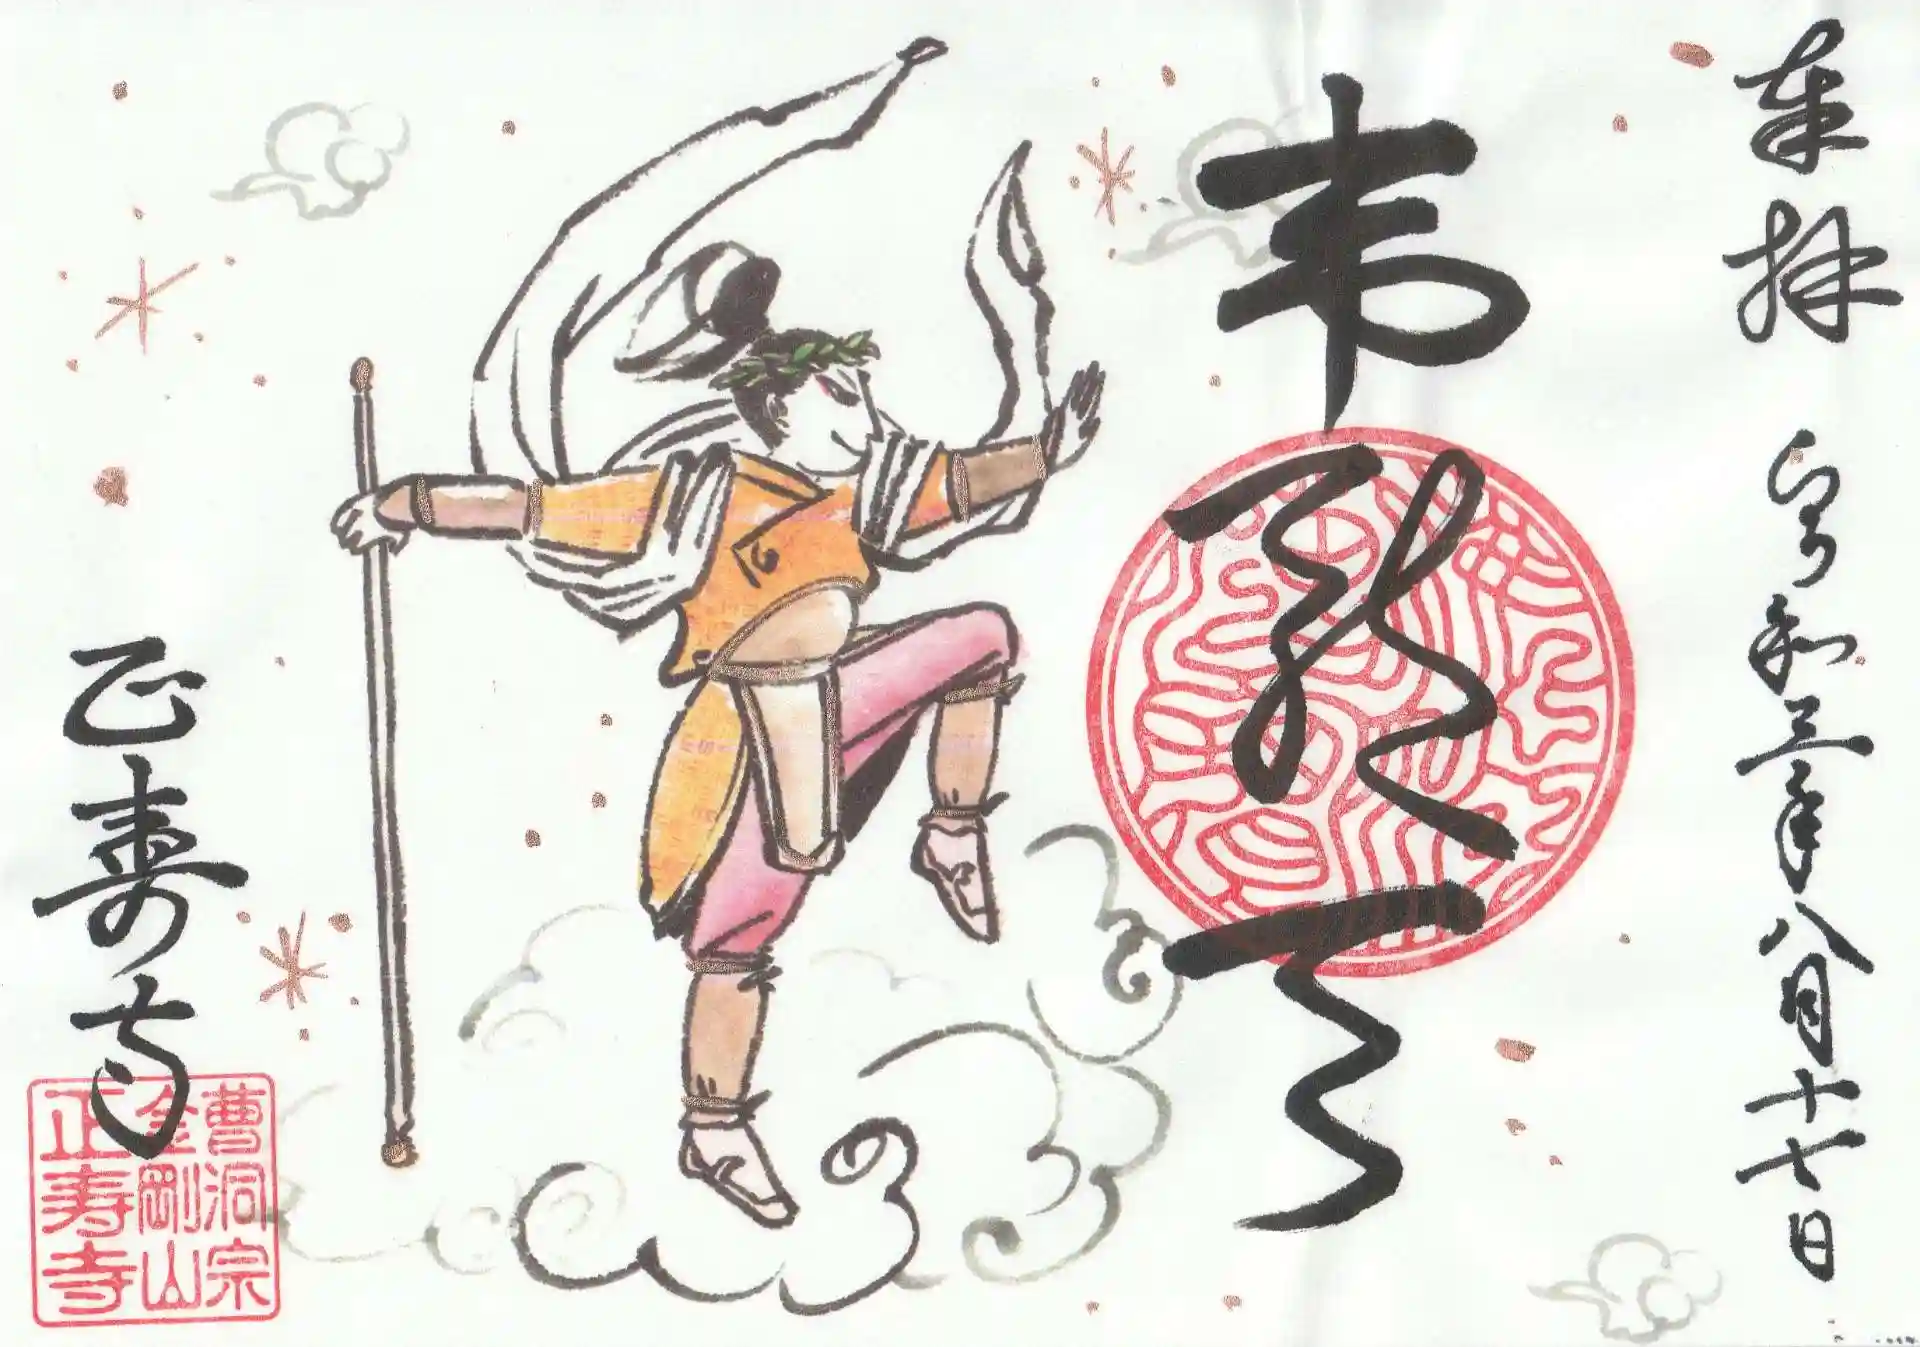 奉拝
令和三年八月十七日
韋駄天
正寿寺
曹洞宗
金剛山
正寿寺